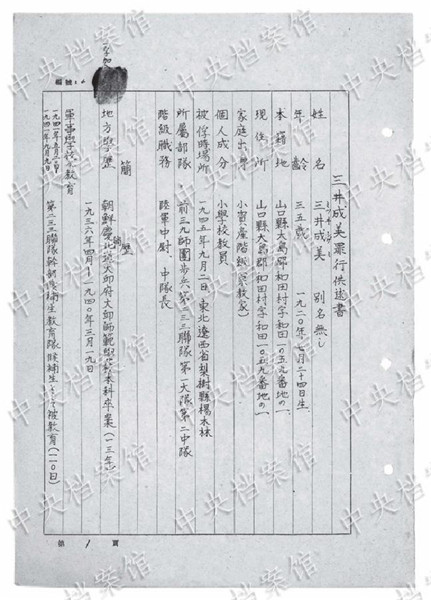 三井成美罪行供述書
姓名 三井成美 別名無し
年齢 三五歳 一九二〇年七月二十四日生
本籍地 山口縣大島郡和田村字和田一〇五九番地の一
現住所 山口縣大島郡和田村字和田一〇五九番地の一
家庭出身 小資産階級(宗教家)
個人成分 小學校教員
被俘時場所 一九四五年九月二日 東北遼西省梨樹縣楊木林
所屬部隊 前三九師團歩兵第二三三聯隊第一大隊第二中隊
階級職務 陸軍中尉、中隊長
簡歴
地方學歴 朝鮮慶北道大邱府大邱師範學校本科卒業(一三年)
一九三六年四月〡一九四〇年三月一九日
軍事學校教育
第二三三聯隊幹部候補生教育隊候補生として被教育(二〇日)
第 1 頁
中央档案馆